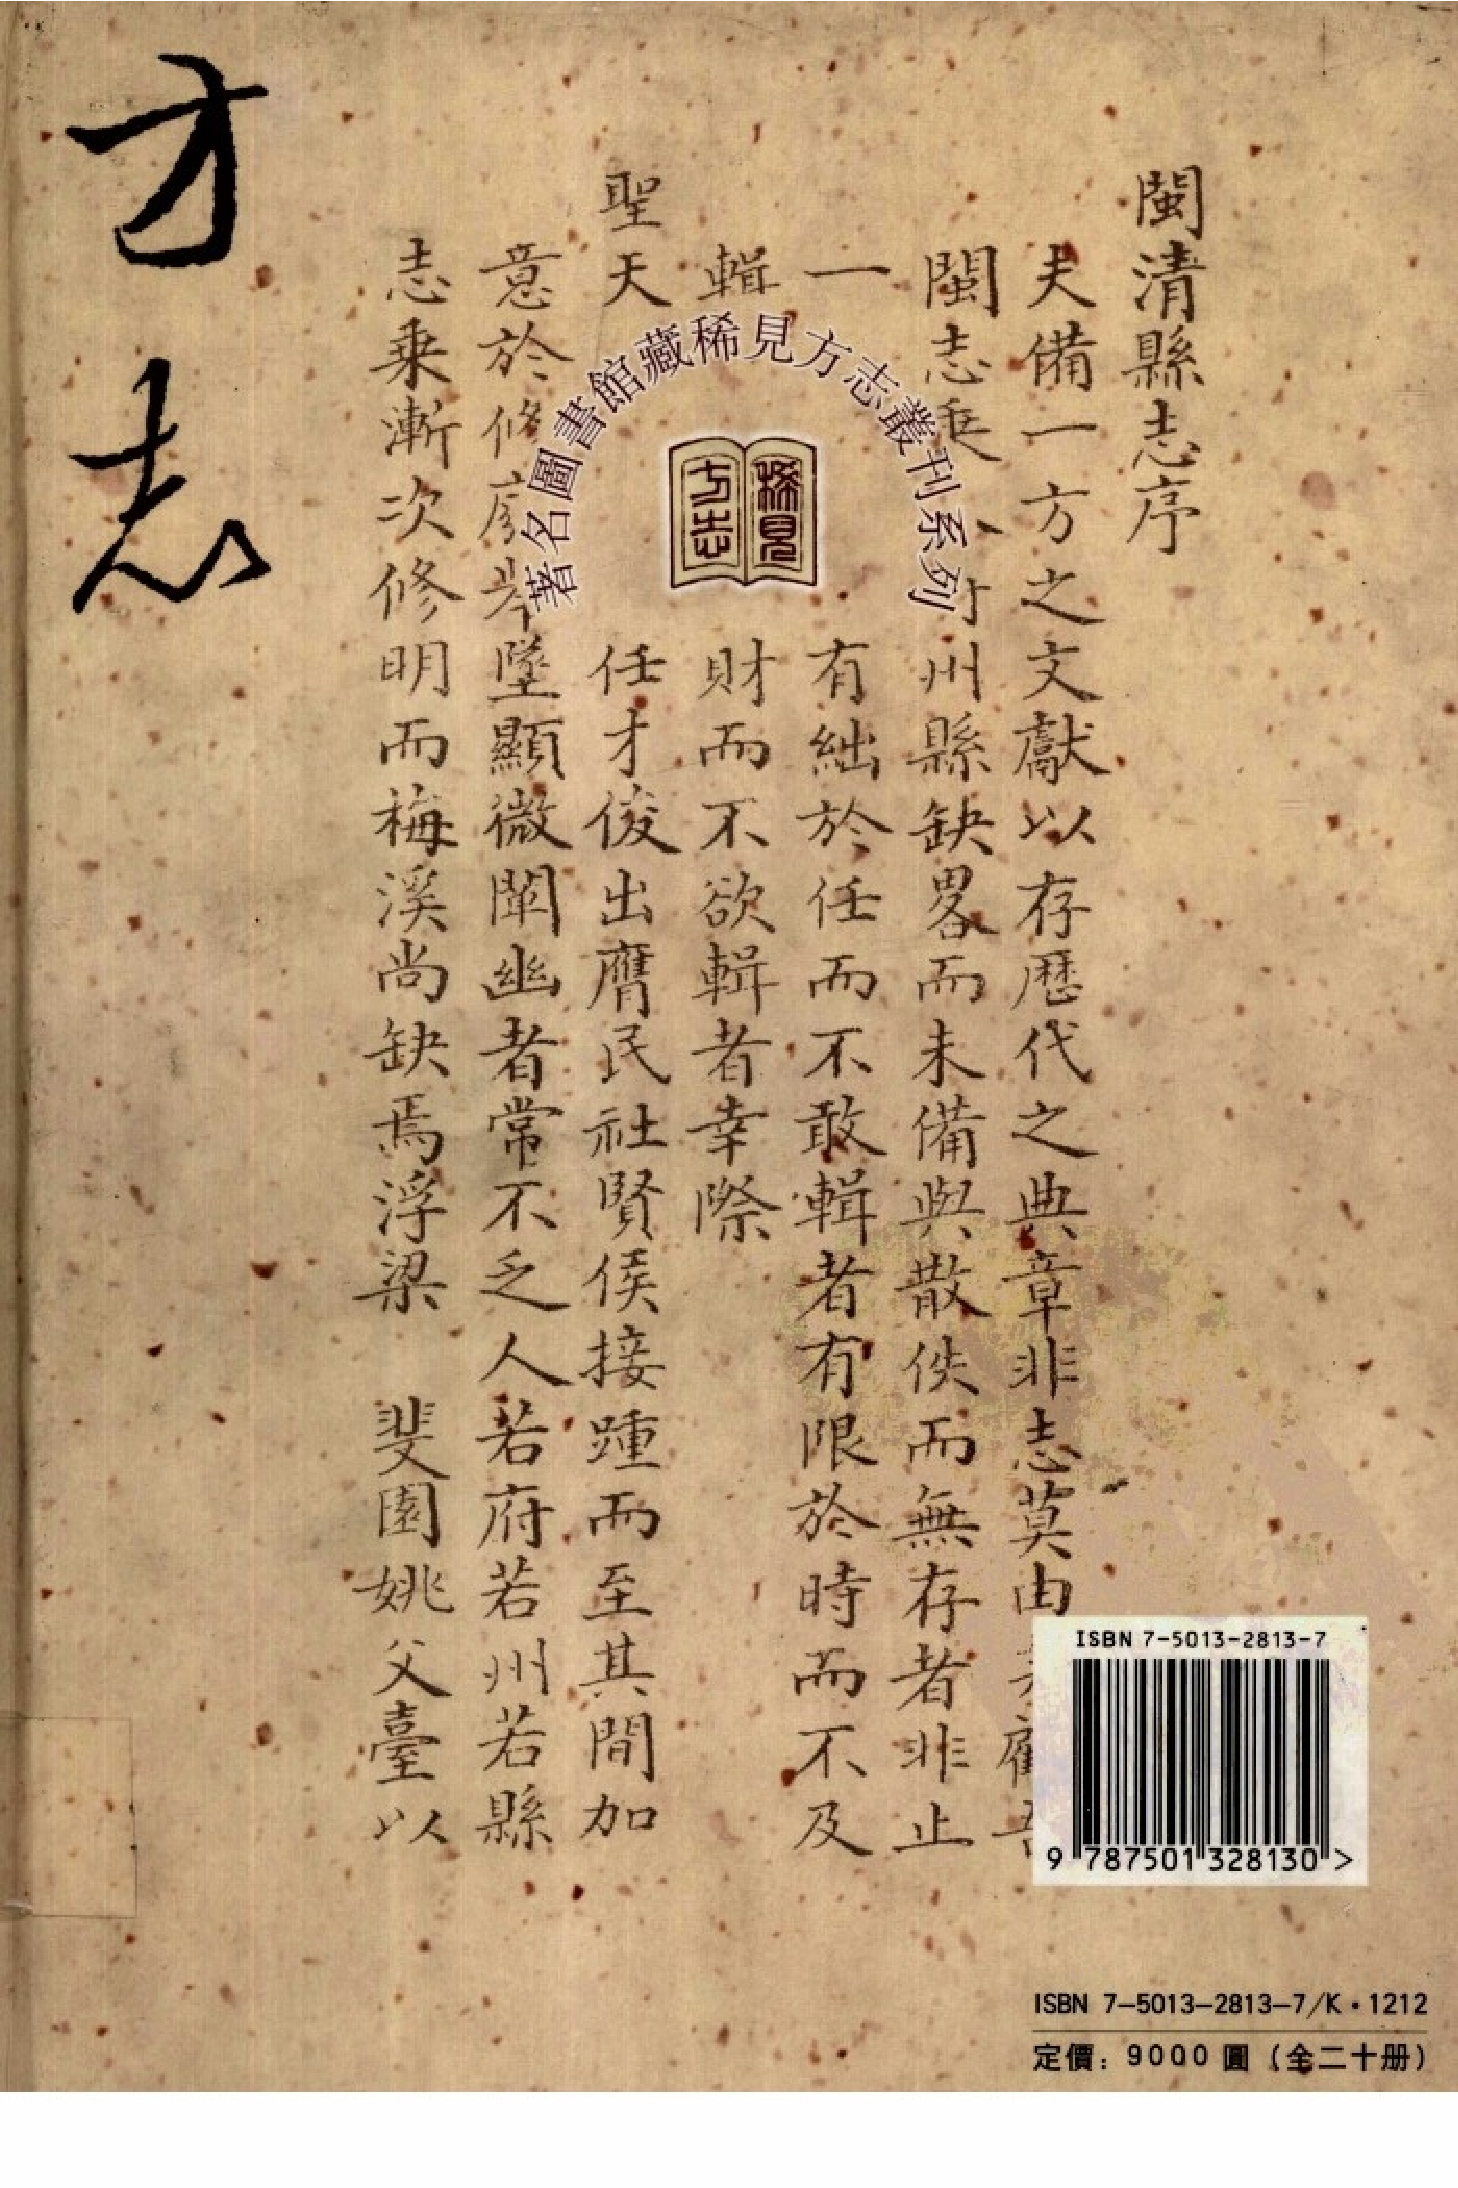 方志
閩清縣志序
夫備一方之文獻以存歷代之典章非志莫由
閩志乘州縣缺畧而未備與散佚而無存者非止
一有絀於任而不敢輯者有限於時而不及
輯財而不欲輯者幸際
聖天任才俊出膺民社賢侯接踵而至其間加
意於修墜顯微闡幽者常不乏人若府若州若縣
志乘漸次修明而梅溪尚缺焉浮梁 斐園姚父臺以
著名圖書館藏稀見方志叢刊系列
稀見
方志
ISBN 7-5013-2813-7
9 787501 328130 >
ISBN 7-5013-2813-7/K·1212
定價：9000 圓（全二十册）